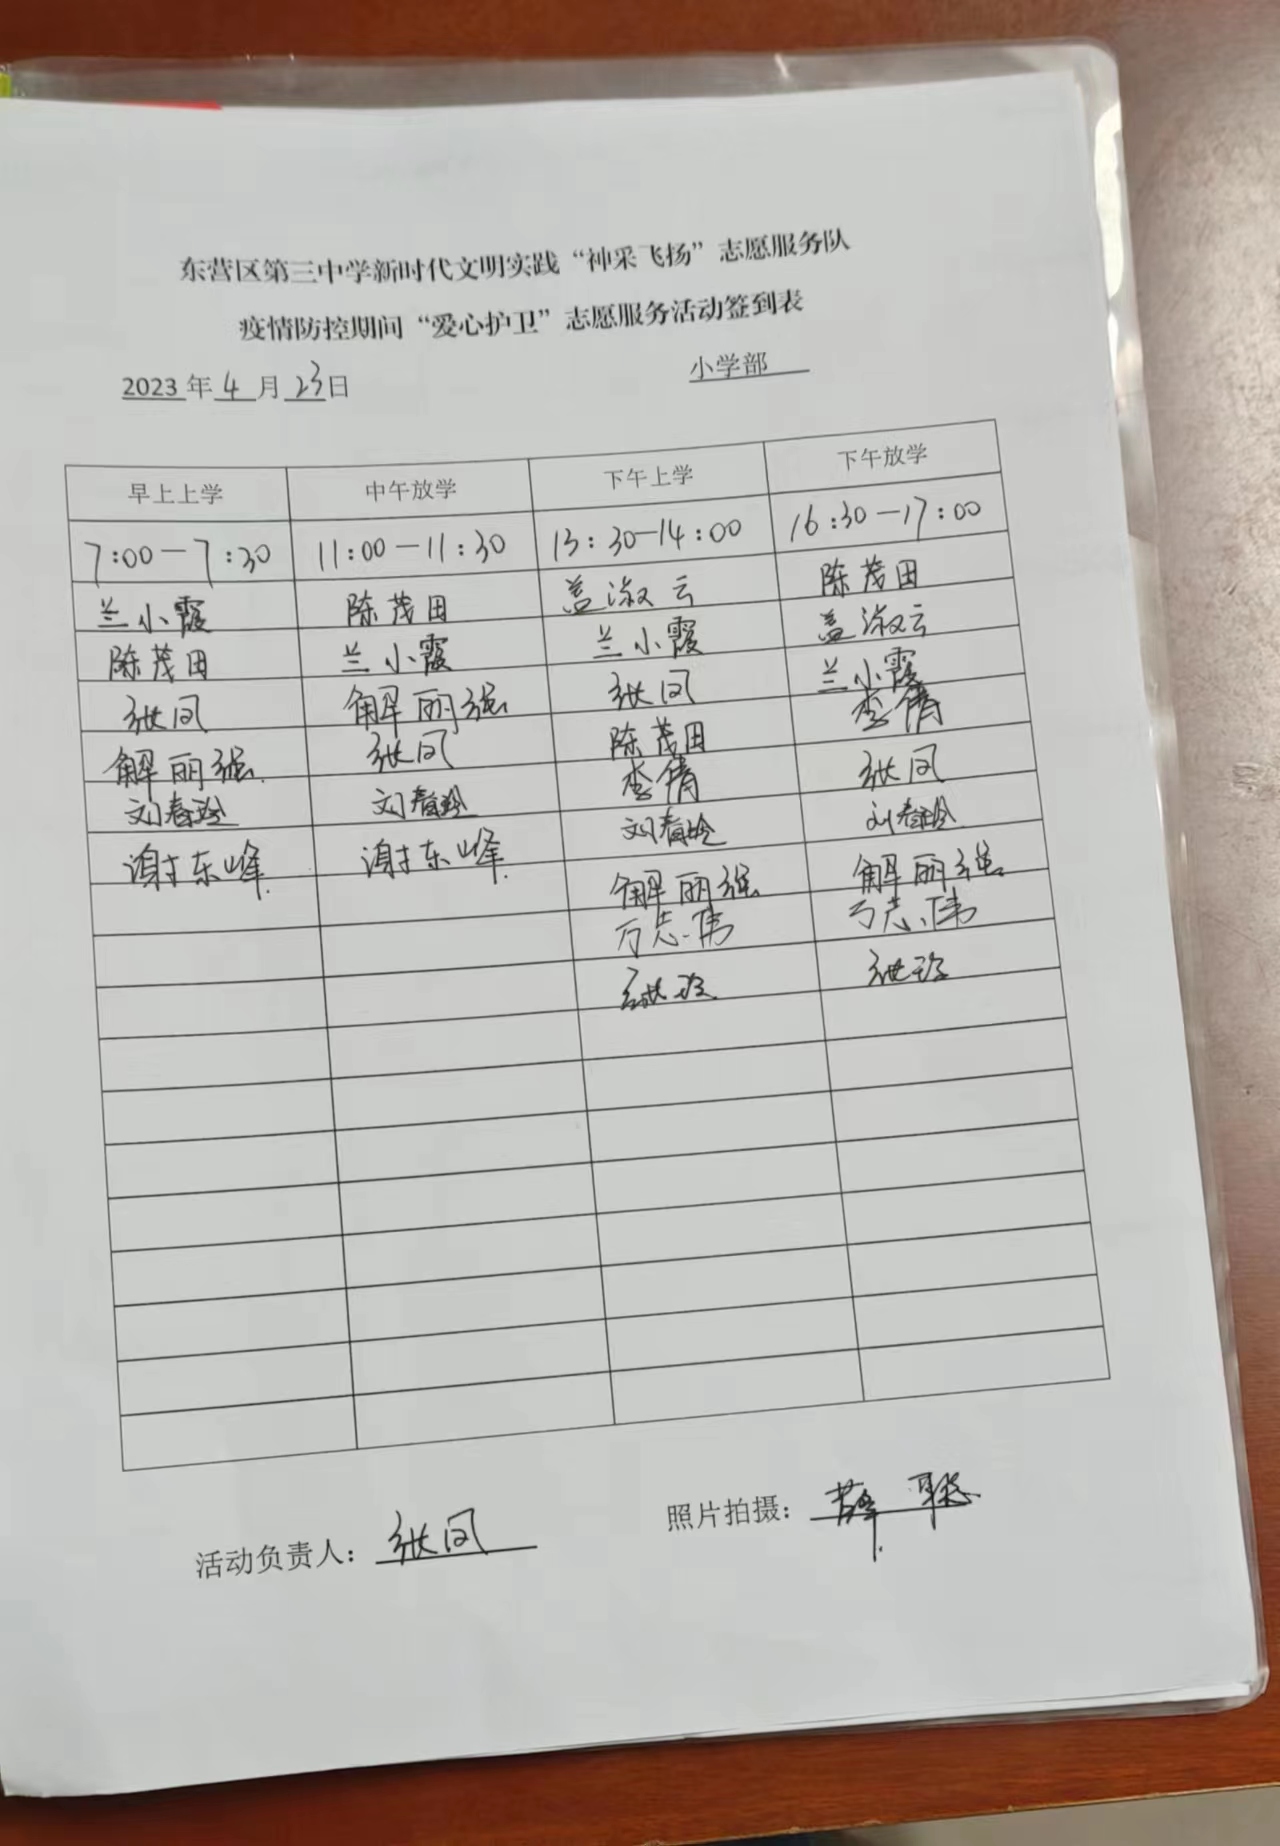 东营区第三中学新时代文明实践“神采飞扬”志愿服务队
疫情防控期间“爱心护卫”志愿服务活动签到表
2023年4月23日 小学部
早上上学 中午放学 下午上学 下午放学
7:00—7:30 11:00—11:30 13:30—14:00 16:30—17:00
兰小霞 陈茂田 盖淑云 陈茂田
陈茂田 兰小霞 兰小霞 盖淑云
张凤 解丽强 张凤 兰小霞
解丽强 张凤 陈茂田 李倩
刘春玲 刘春玲 李倩 张凤
谢东峰 谢东峰 刘春玲 刘春玲
解丽强 解丽强
万志伟 万志伟
张玲 张玲
活动负责人：张凤 照片拍摄：薛聪